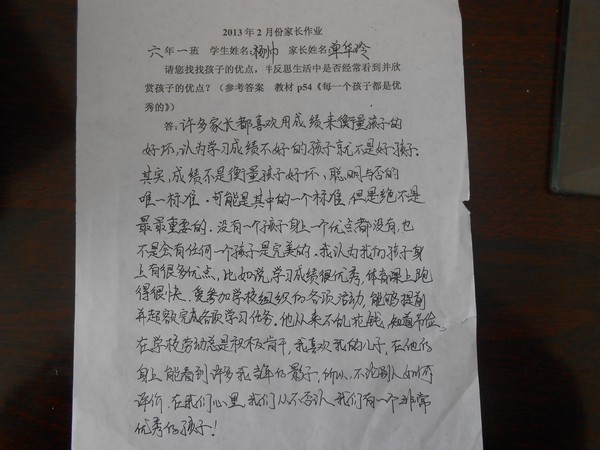 2013年2月份家长作业
六年一班 学生姓名:杨帅 家长姓名:单华玲
请您找找孩子的优点,并反思生活中是否经常看到并欣
赏孩子的优点?(参考答案 教材p54《每一个孩子都是优
秀的》)
答:许多家长都喜欢用成绩来衡量孩子的
好坏,认为学习成绩不好的孩子就不是好孩子.
其实,成绩不是衡量孩子好坏、聪明与否的
唯一标准.可能是其中的一个标准,但是绝不是
最最重要的.没有一个孩子身上一个优点都没有,也
不是会有任何一个孩子是完美的.我认为我们孩子身
上有很多优点,比如说,学习成绩很优秀,体育课上跑
得很快.爱参加学校组织的各项活动,能够提前
并超额完成各项学习任务.他从来不乱花钱,知道节俭.
在学校劳动总是积极肯干,我喜欢我的儿子,在他的
身上能看到许多我童年的影子,所以,不论别人如何
评价,在我们心里,我们从不否认,我们有一个非常
优秀的孩子!